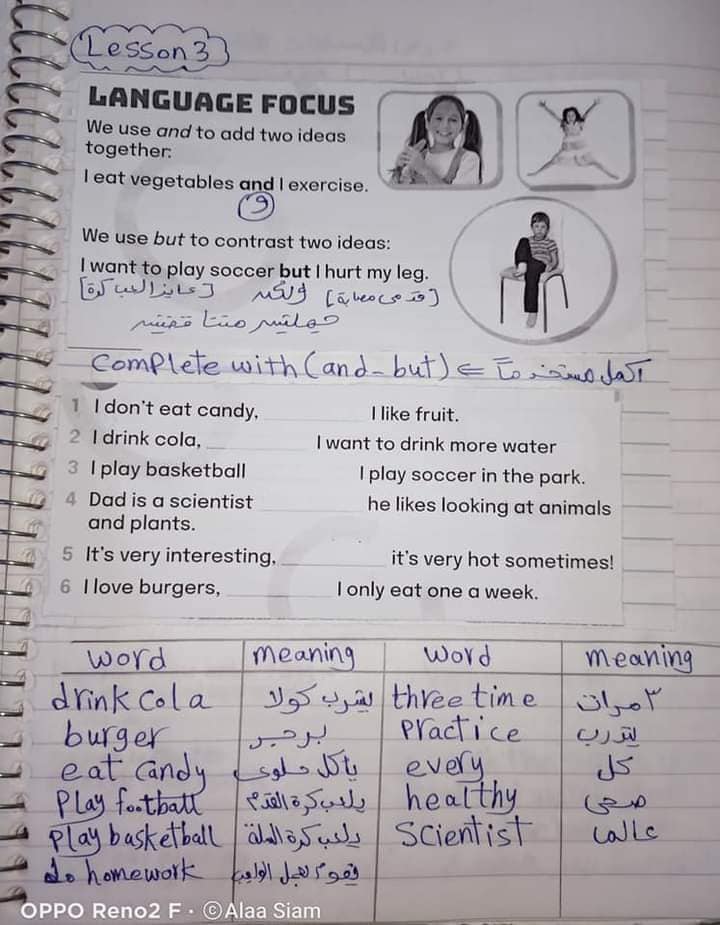 Lesson 3
LANGUAGE FOCUS
We use and to add two ideas
together:
I eat vegetables and I exercise.
و
We use but to contrast two ideas:
I want to play soccer but I hurt my leg.
[عايز العب كرة] ولكن [قدمى مصابة]
جملتين
Complete with (and - but) ⇐ أكمل مستخدماً
1 I don't eat candy, ______ I like fruit.
2 I drink cola, ______ I want to drink more water
3 I play basketball ______ I play soccer in the park.
4 Dad is a scientist ______ he likes looking at animals
and plants.
5 It's very interesting, ______ it's very hot sometimes!
6 I love burgers, ______ I only eat one a week.
word meaning word meaning
drink cola يشرب كولا three time ٣ مرات
burger برجر Practice يتدرب
eat candy ياكل حلوى every كل
Play football يلعب كرة القدم healthy صحى
Play basketball يلعب كرة السلة Scientist عالما
do homework يقوم بعمل الواجب
OPPO Reno2 F · ©Alaa Siam